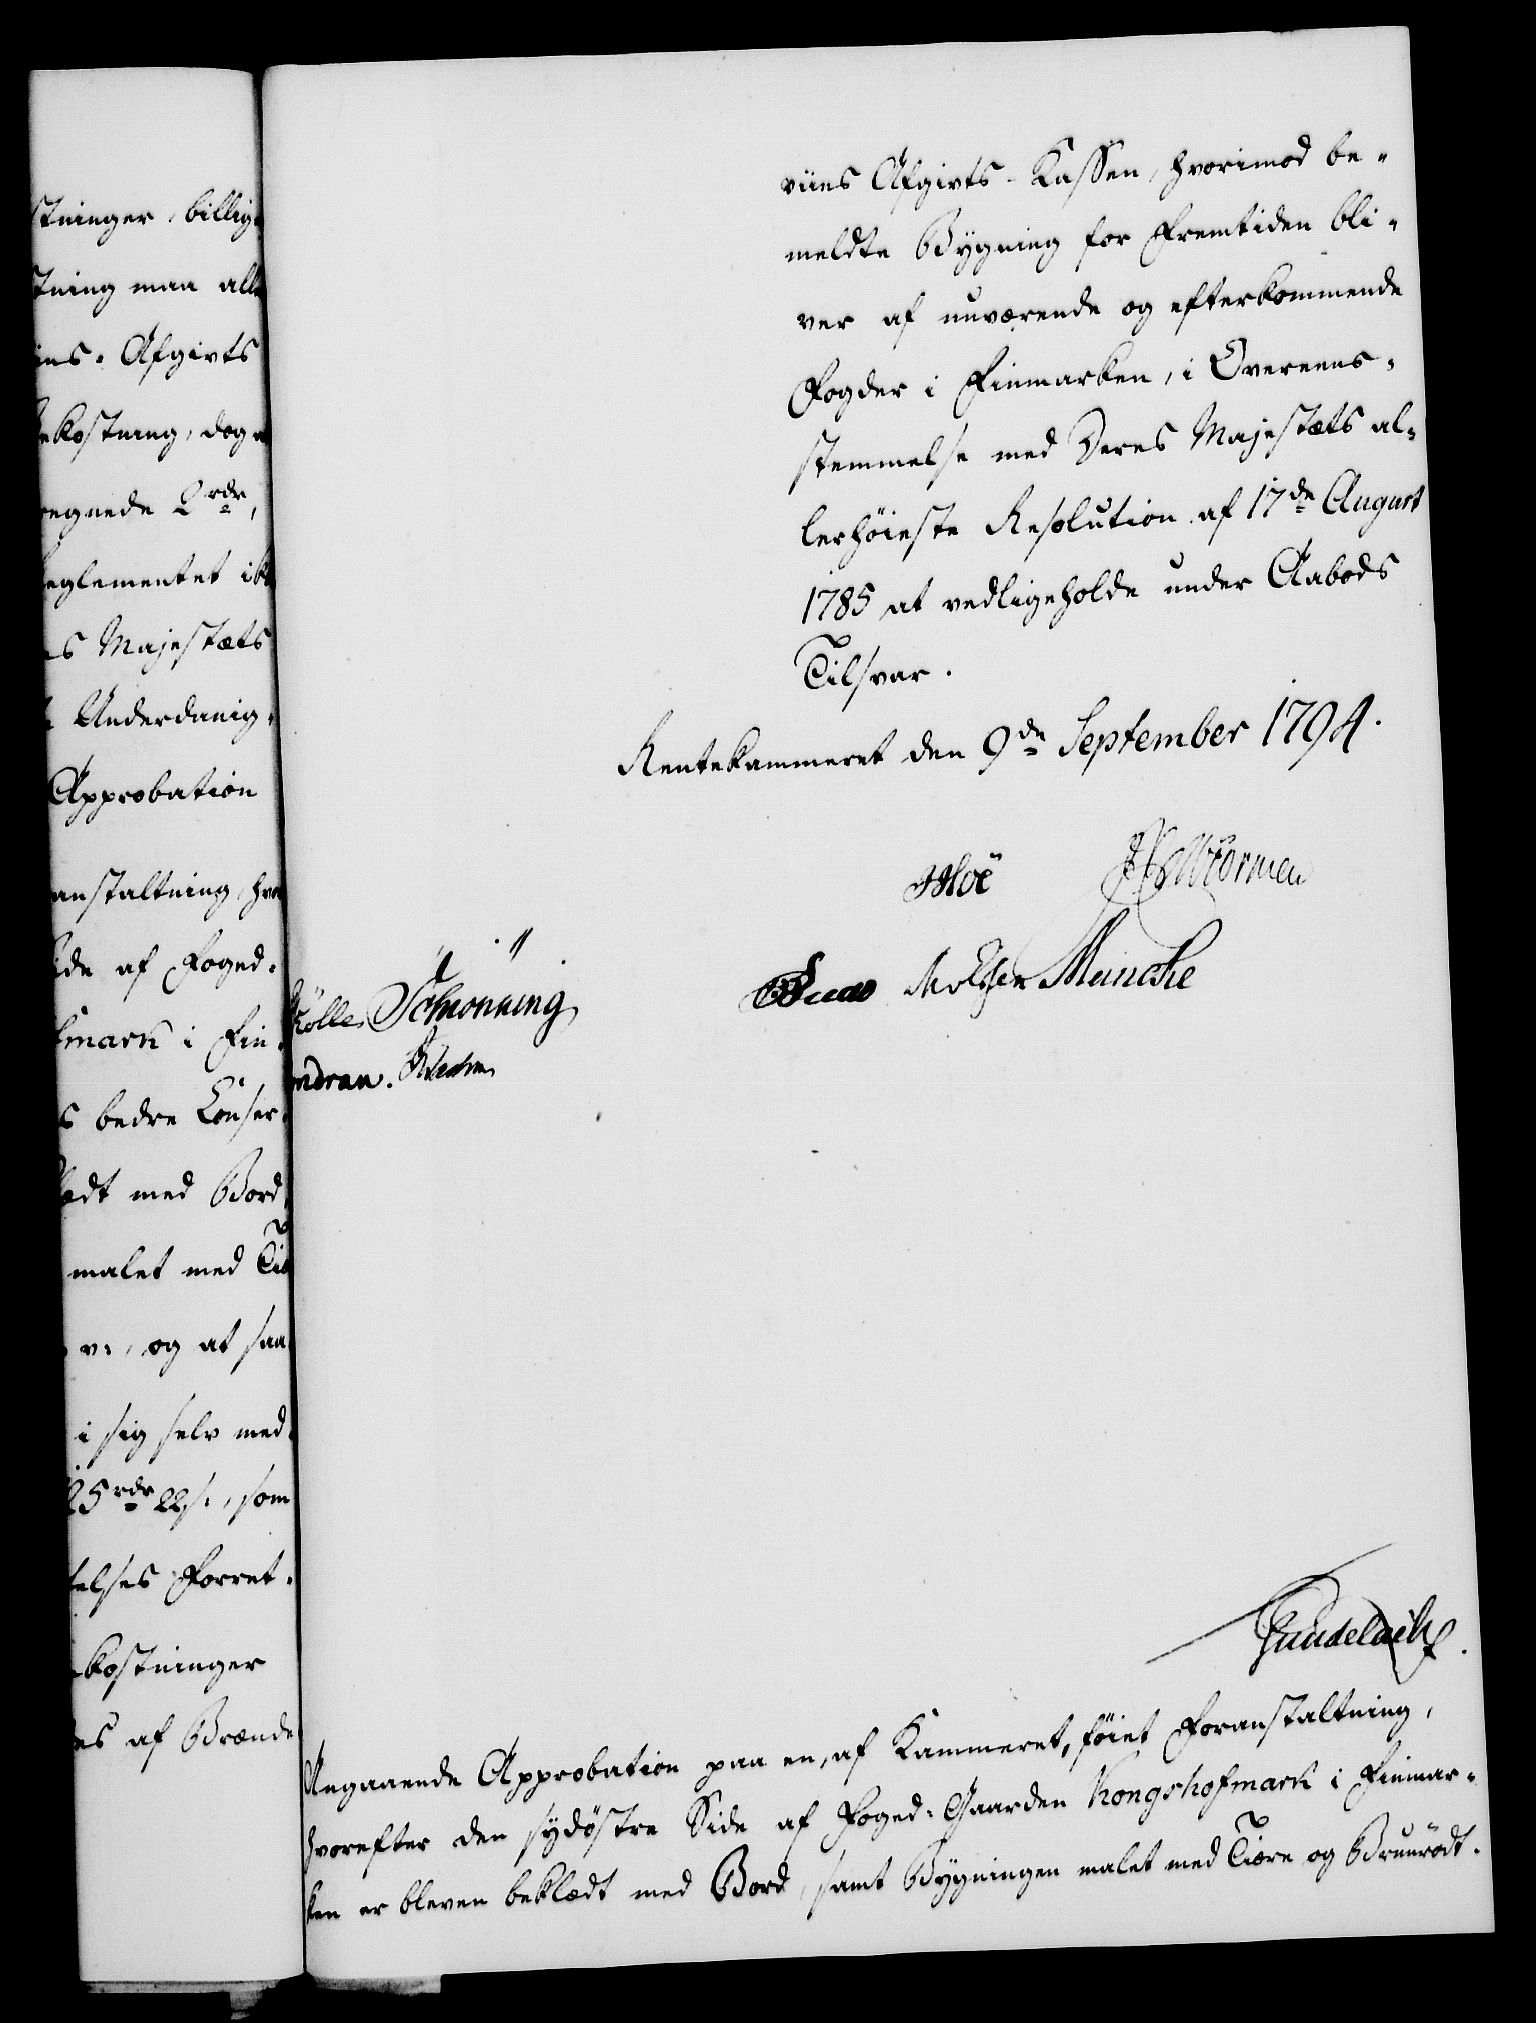 stninger, billig-
stning maa alle
ins-Afgivts
ekostning, dog
egnede
eglementet ik
s Majestæts
Underdanig-
Approbation
anstaltning, hvor
ide af Foged-
mark i Fin-
s bedre Conser-
ædt med Bord,
malet med Tiæ
v:, og at saa-
i sig selv med-
25 rdr 22 s:, som
telses Forret-
kostninger
es af Brænde
viins Afgivts-Kassen, hvorimod be-
meldte Bygning for Fremtiden bli-
ver af nuværende og efterkommende
Fogder i Finmarken, i Overeens-
stemmelse med Deres Majestæts al-
lerhöieste Resolution af 17de August
1785 at vedligeholde under Aabods
Tilsvar.
Rentekammeret den 9de September 1794.
Moe Wormen
Knoff Meltzer Munche
Rölle. Schionning
Gundelach.
Angaaende Approbation paa en, af Kammeret, föiet Foranstaltning,
hvorefter den sydöstre Side af Foged-Gaarden Kongshofmark i Finmar-
ken er bleven beklædt med Bord, samt Bygningen malet med Tiære og Bruunrödt.